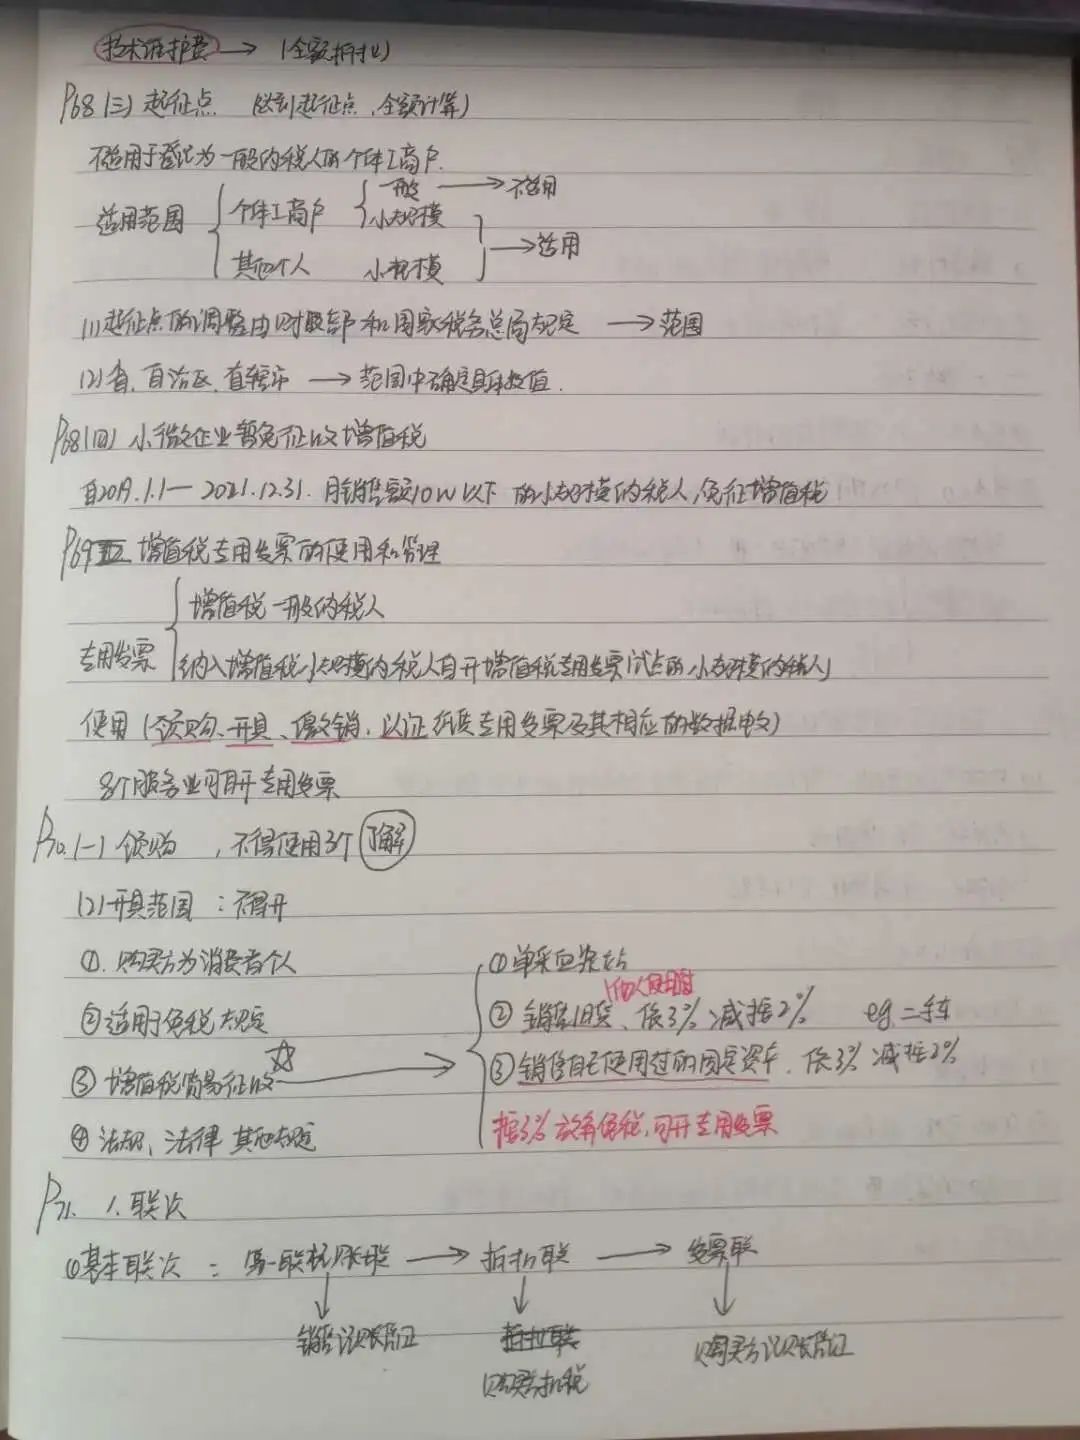 技术维护费 → (全额抵扣)
P68 (三) 起征点 (达到起征点,全额计算)
不适用于登记为一般纳税人的个体工商户.
适用范围 { 个体工商户 { 一般 → 不适用
小规模
其他个人 小规模 → 适用
(1)起征点的调整由财政部和国家税务总局规定 → 范围
(2)省、自治区、直辖市 → 范围中确定具体数值.
P68(四) 小微企业暂免征收增值税
自2019.1.1— 2021.12.31. 月销售额10w以下的小规模纳税人,免征增值税
P69 五 增值税专用发票的使用和管理
专用发票 { 增值税一般纳税人
纳入增值税小规模纳税人自开增值税专用发票试点的小规模纳税人
使用 (领购、开具、缴销、认证纸质专用发票及其相应的数据电文)
8个服务业可自开专用发票
P70.(一) 领购 ,不得使用3个 了解
(2)开具范围 : 不得开
①. 购买方为消费者个人
②适用于免税规定
③ 增值税简易征收 ☆ →
④ 法规、法律 其他规定
①单采血浆站
② 销售旧货、依3% 减按2% eg 二手车
他人使用过
③销售自己使用过的固定资产、依3% 减按2%
按3% 放弃免税,可开专用发票
P71. 1.联次
①基本联次 : 第一联 记账联 → 抵扣联 → 发票联
销售记账凭证
购买方扣税
购买方记账凭证